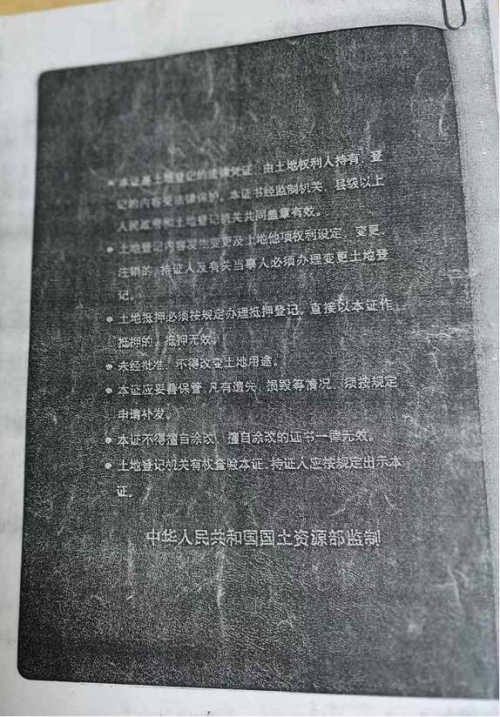 ● 本证是土地登记的法律凭证，由土地权利人持有，登
记的内容受法律保护。本证书经监制机关、县级以上
人民政府和土地登记机关共同盖章有效。
● 土地登记内容发生变更及土地他项权利设定、变更、
注销的，持证人及有关当事人必须办理变更土地登
记。
● 土地抵押必须按规定办理抵押登记。直接以本证作
抵押的，抵押无效。
● 未经批准，不得改变土地用途。
● 本证应妥善保管，凡有遗失、损毁等情况，须按规定
申请补发。
● 本证不得擅自涂改，擅自涂改的证书一律无效。
● 土地登记机关有权查验本证，持证人应按规定出示本
证。
中华人民共和国国土资源部监制